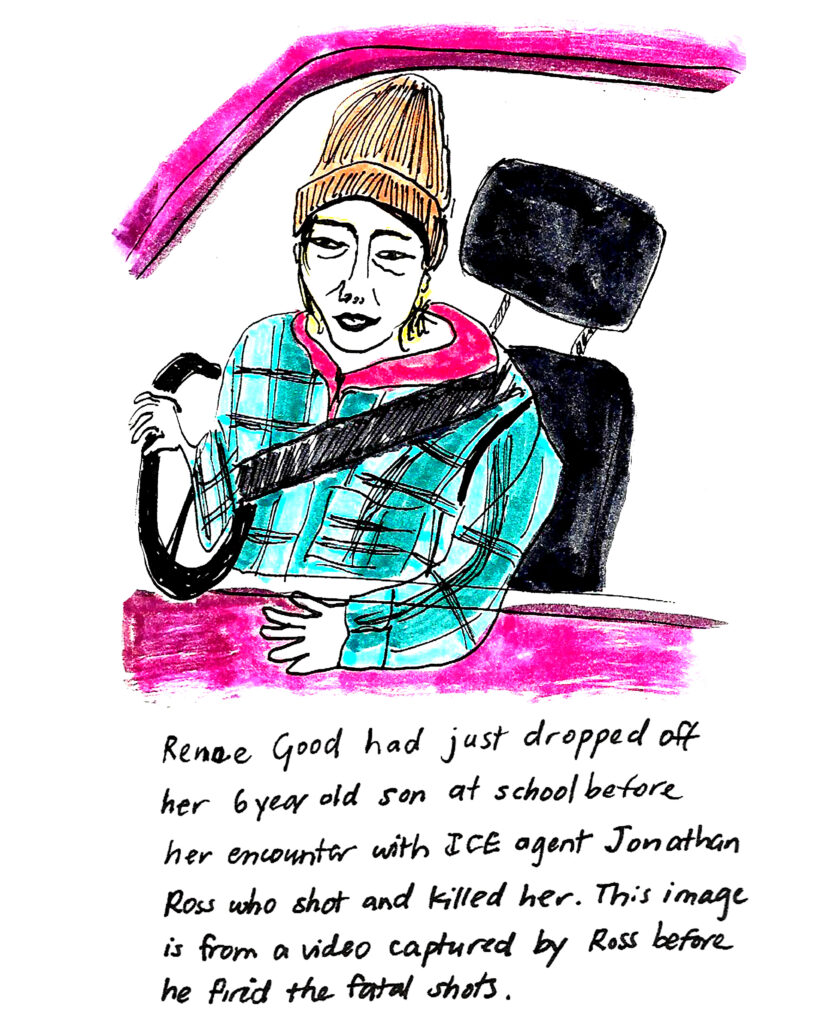 Renee Good had just dropped off
her 6 year old son at school before
her encounter with ICE agent Jonathan
Ross who shot and killed her. This image
is from a video captured by Ross before
he fired the fatal shots.